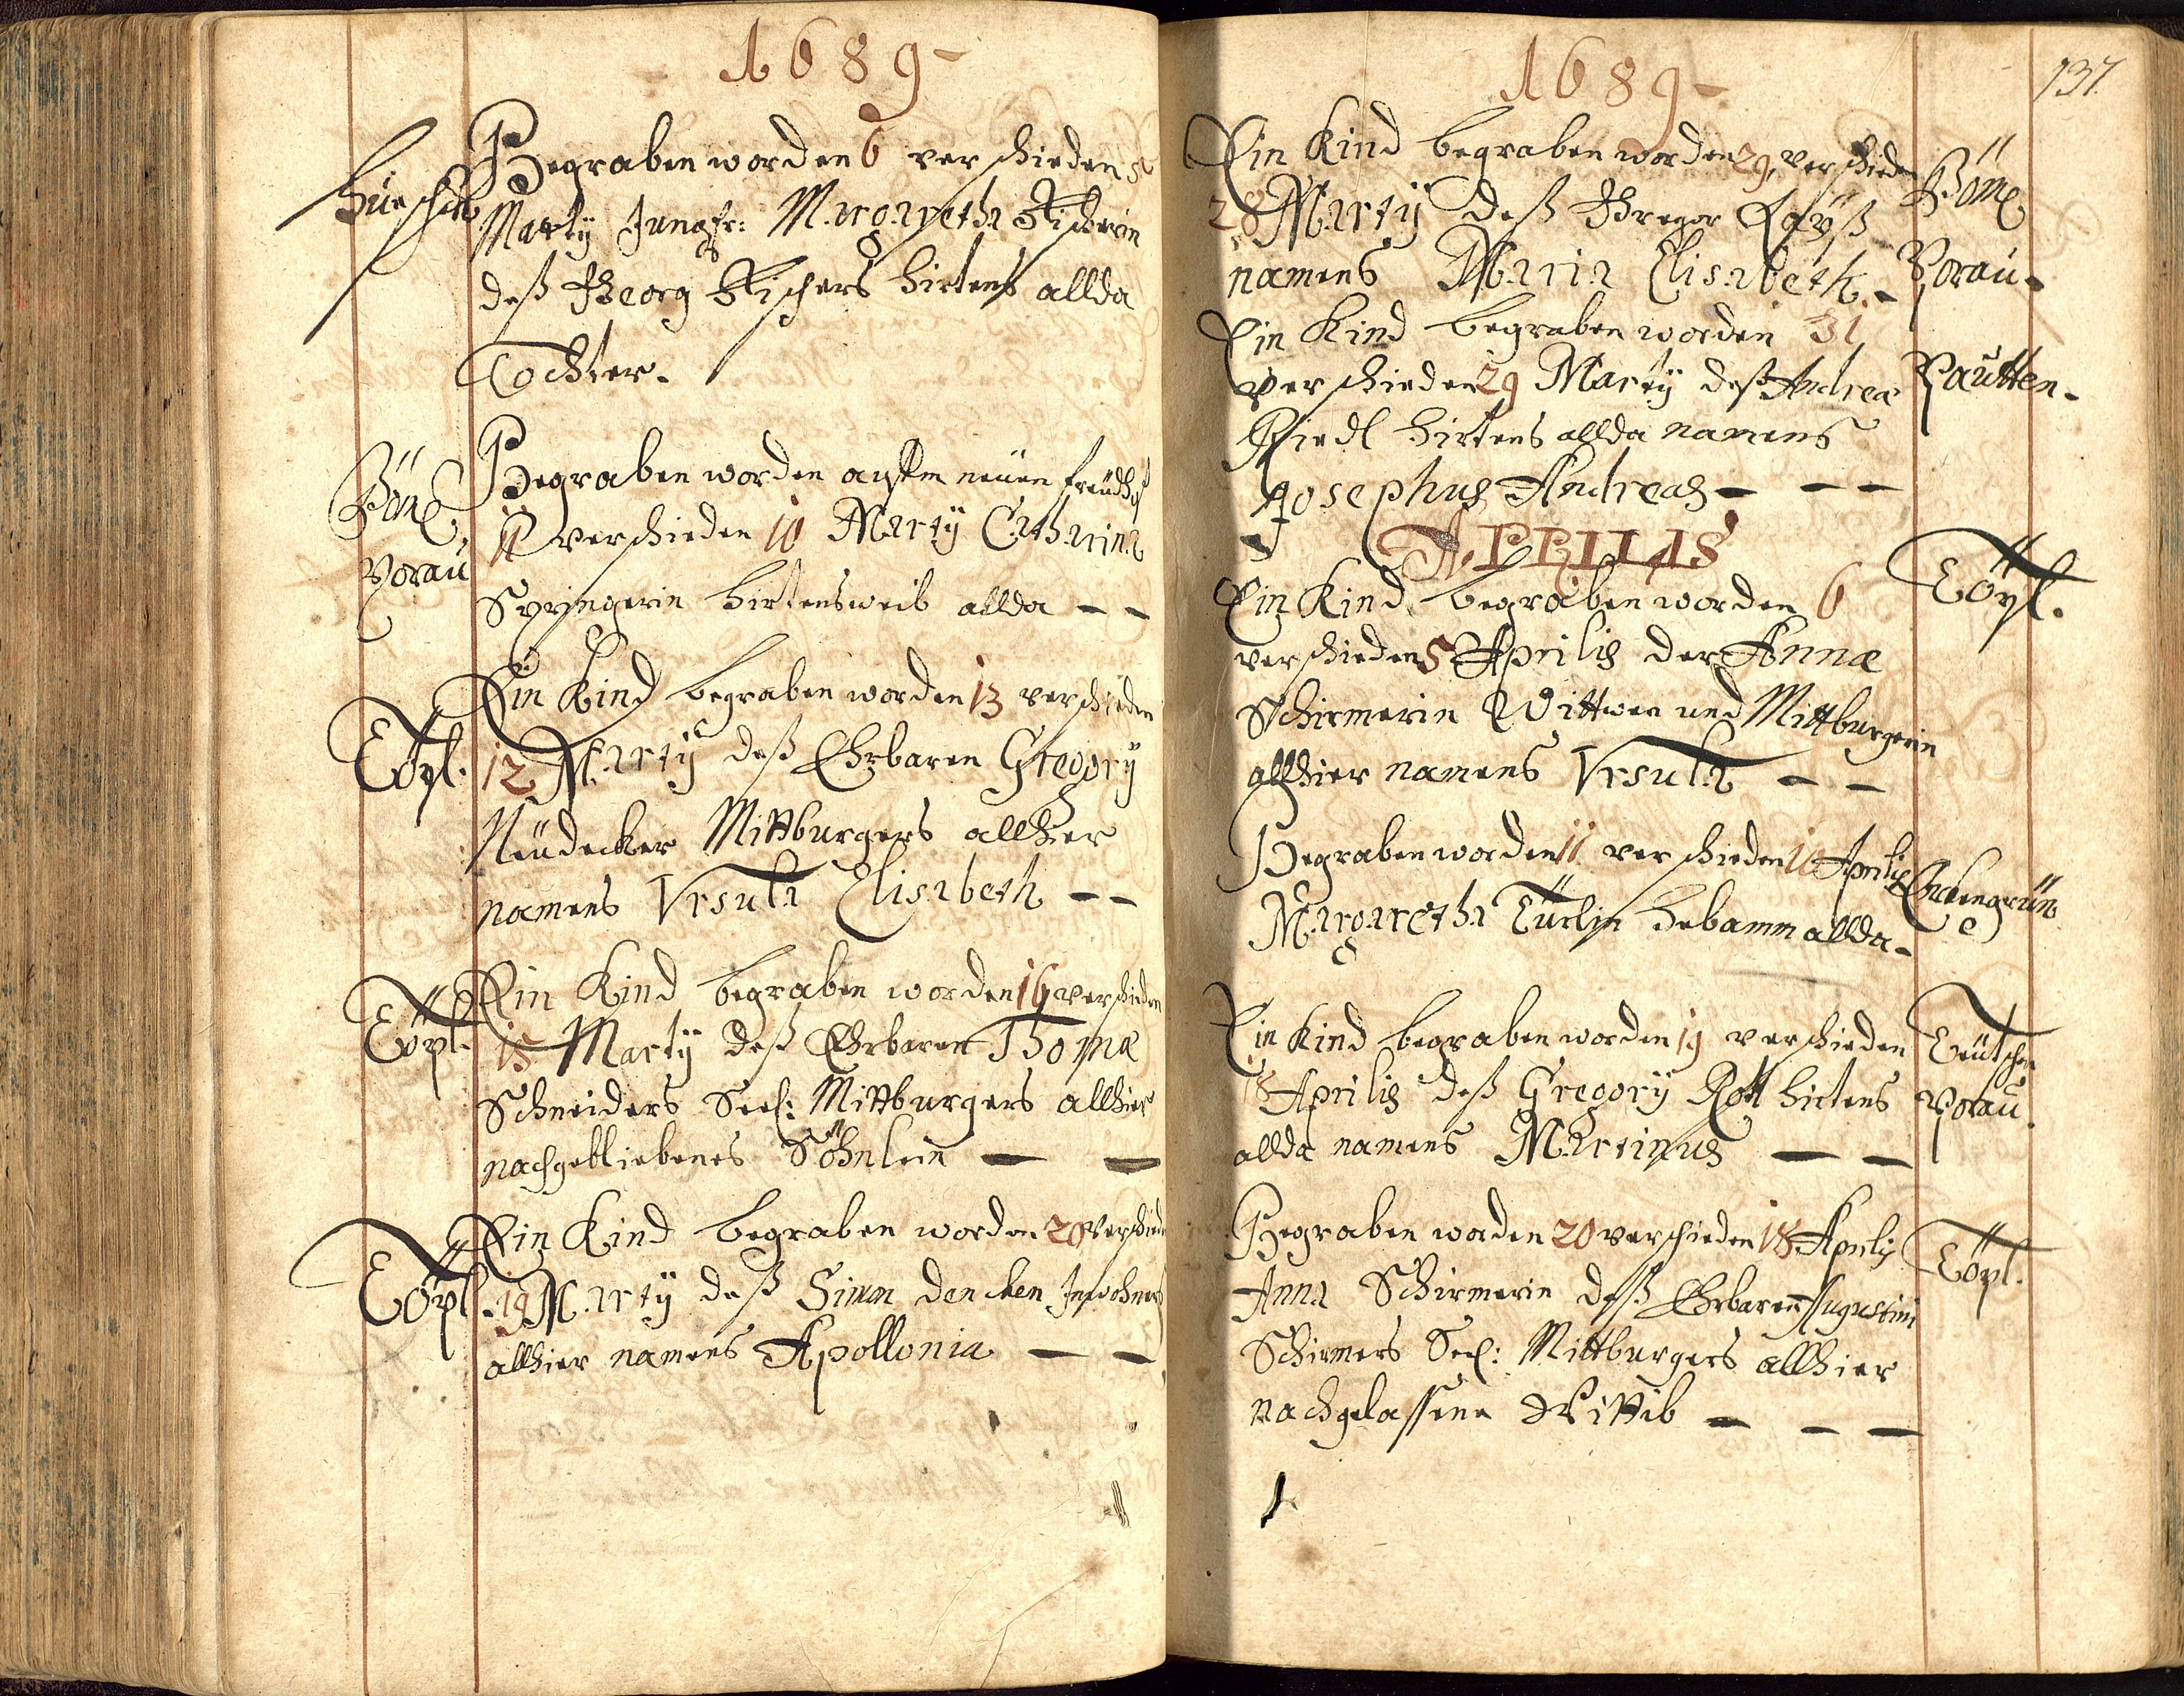 1689-
Hurschk
Begraben worden 6 verschieden 5
Marty Jungfr: Margaretha Fischerin
deß Georg Fischers Hirtens allda
Tochter.
Böm.
Borau
Begraben worden aufm neuen freudthof
11 verschieden 10 Marty Catharina
Springerin Hirtensweib allda - -
Töpl.
Ein Kind begraben worden 13 verschieden
12 Marty deß Ehrbaren Gregory
Neudecker Mittburgers allhier
namens Vrsula Elisabeth - -
Töpl.
Ein Kind begraben worden 16 verschieden
15 Marty deß Ehrbaren Thomæ
Schneiders Seel: Mittburgers allhier
nachgebliebenes Söhnlein - -
Töpl.
Ein Kind begraben worden 20 verschieden
19 Marty deß Simon Dencken Inwohners
allhier namens Apollonia - -
1689-
137.
Ein Kind begraben worden 29, verschieden
28 Marty deß Gregor
namens Maria Elisabeth. -
Böm.
Borau-
Ein Kind begraben worden 31
verschieden 29 Marty deß Andreæ
Riedl Hirtens allda namens
Josephus Andreas - - -
Pautten-
APRILIS
Ein Kind begraben worden 6
verschieden 5 Aprilis der Annæ
Schirmerin Wittwen und Mittburgerin
allhier namens Vrsula - -
Töpl.
Begraben worden 11 verschieden 10 Aprilis
Margaretha Türlin Hebamm allda-
Enckengrün
Ein Kind begraben worden 19 verschieden
18 Aprilis deß Gregory Rott Hirtens
allda namens Martinus - -
Teutschen
Borau.
Begraben worden 20 verschieden 18 Aprilis
Anna Schirmerin deß Ehrbaren Augustini
Schirmers Seel: Mittburgers allhier
nachgelassene Wittib - - -
Töpl.